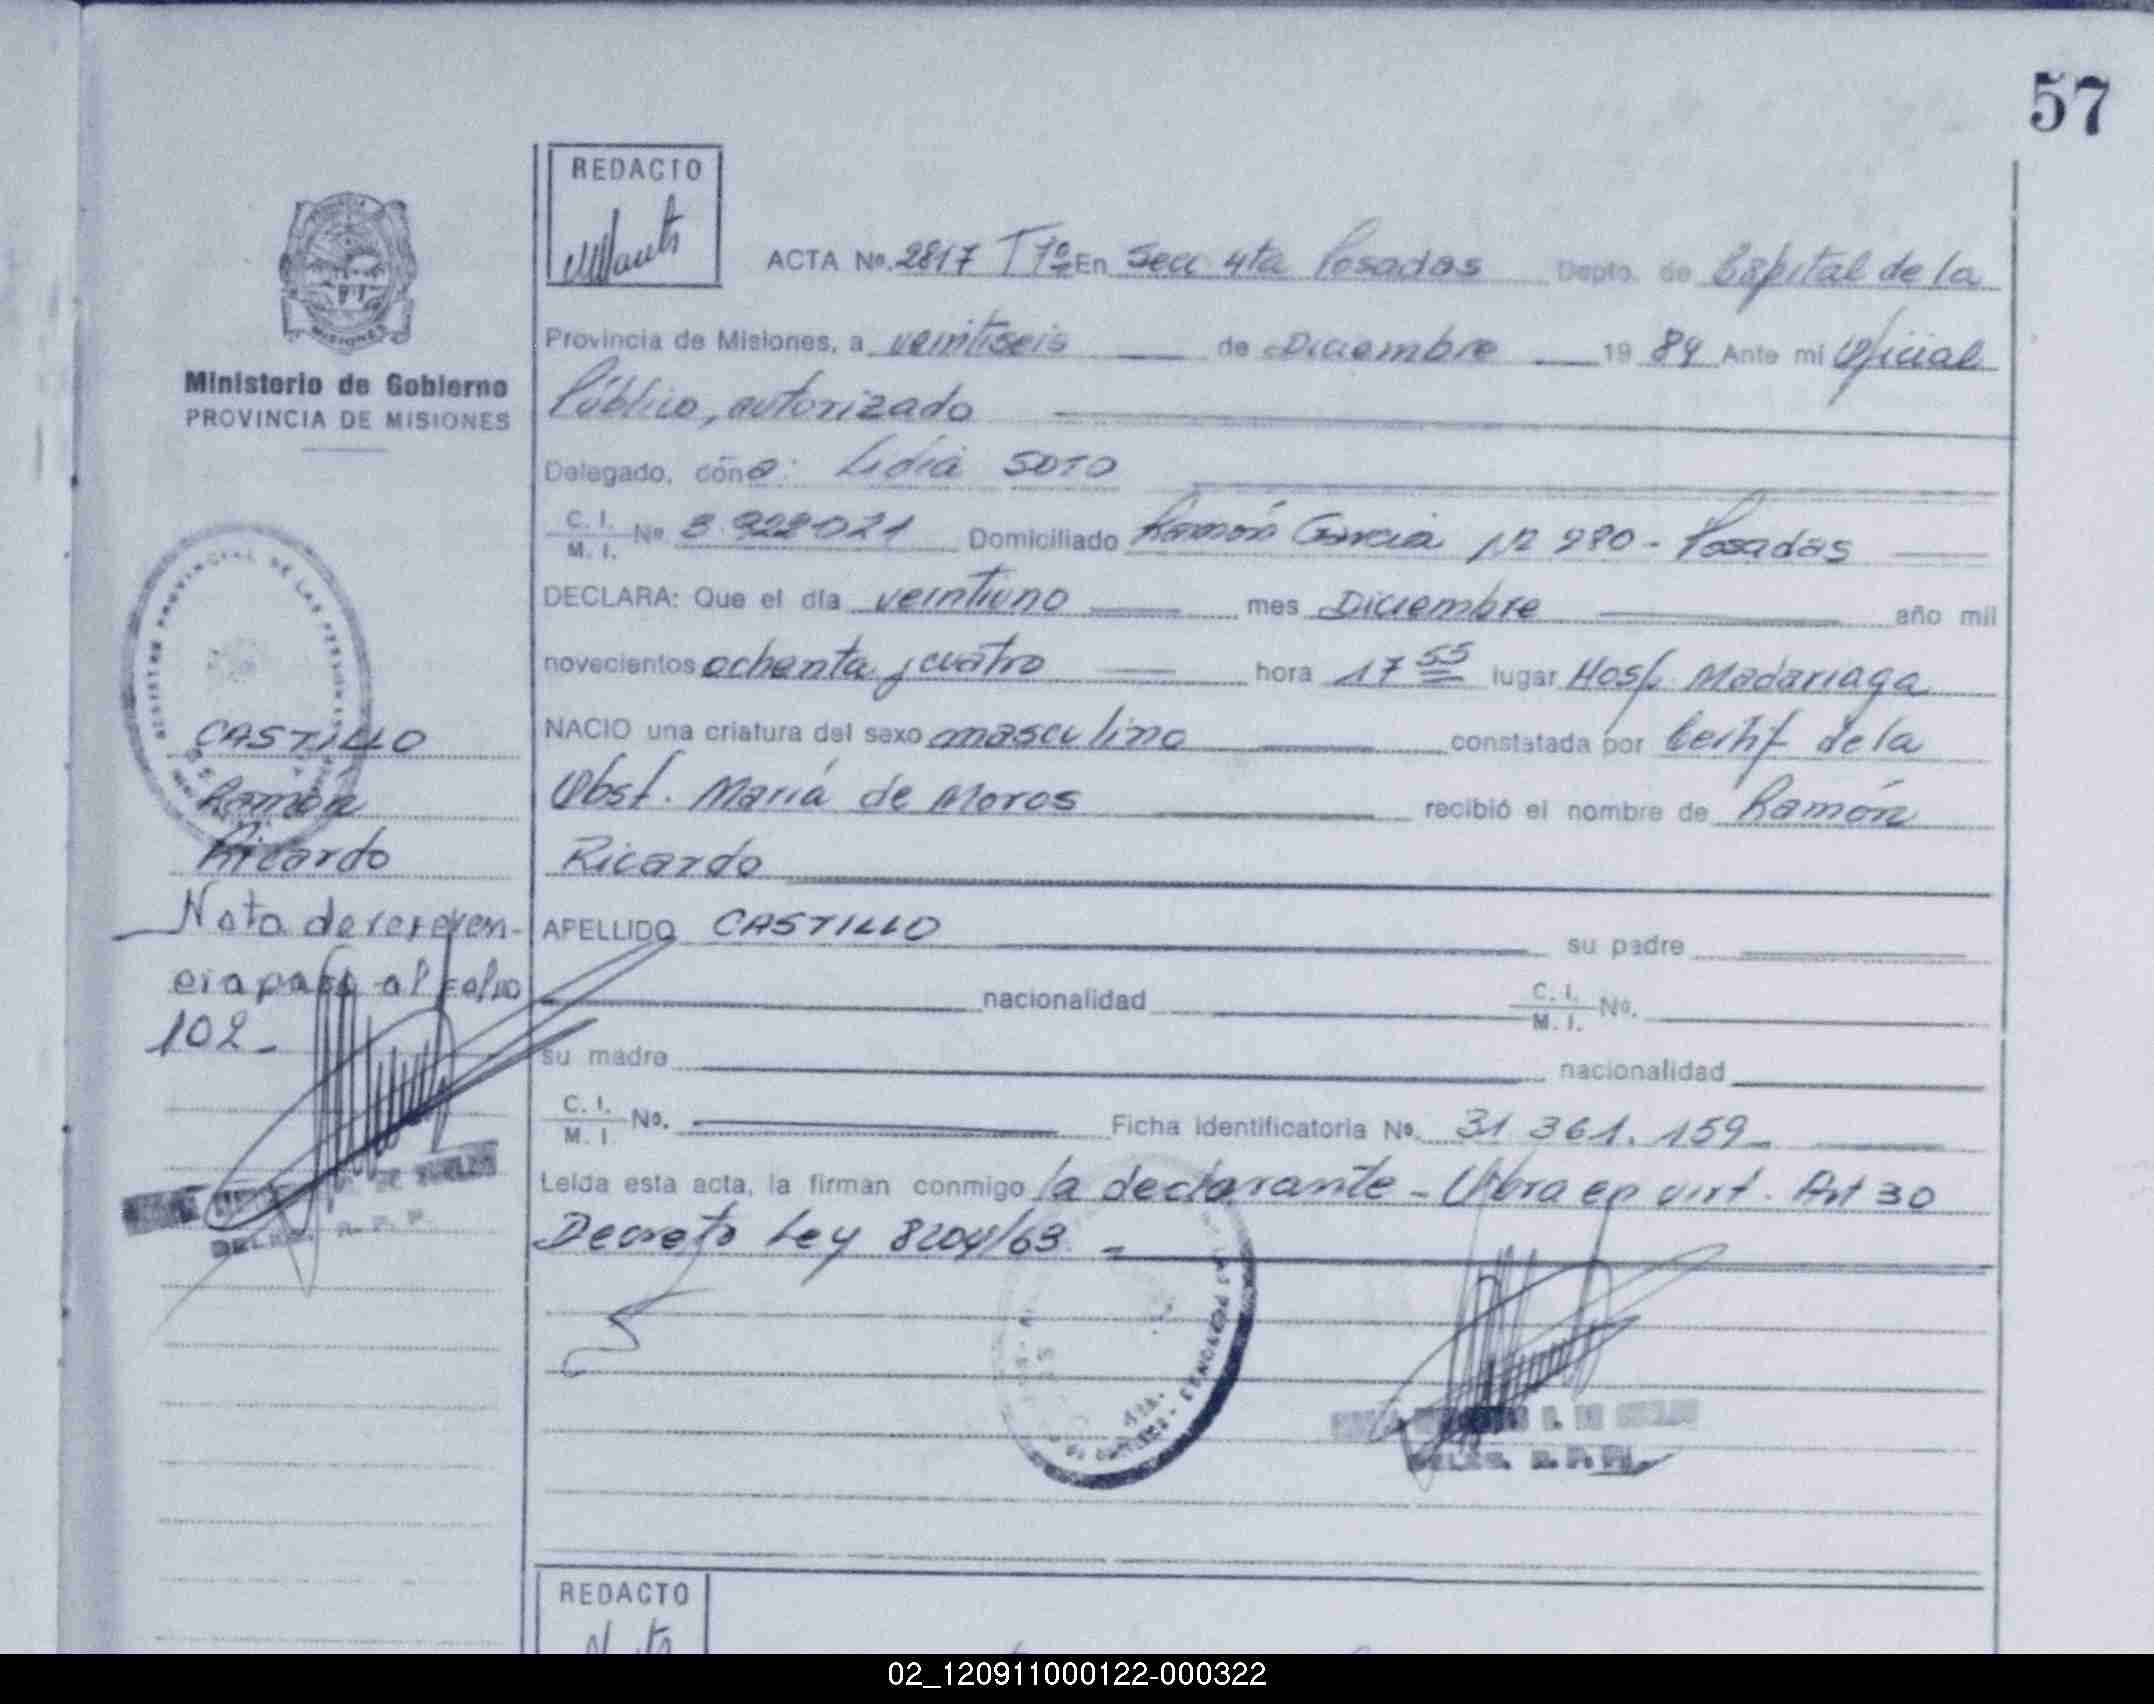 57
REDACTO
ACTA Nº. 2817 T 1º En Secc 4ta Posadas Depto. de Capital de la
Provincia de Misiones, a veintiseis de Diciembre 19 84 Ante mi Oficial
Público, autorizado
Delegado, con a: Lidia SOTO
C. I.
M. I. Nº 3.922021 Domiciliado Ramón Garcia Nº 280 - Posadas
DECLARA: Que el día veintiuno mes Diciembre año mil
novecientos ochenta y cuatro hora 17 55 lugar Hosp. Madariaga
NACIO una criatura del sexo masculino constatada por Certif. de la
Obst. María de Moros recibió el nombre de Ramón
Ricardo
APELLIDO CASTILLO su padre
nacionalidad C. I.
M. I. Nº.
su madre nacionalidad
C. I.
M. I. Nº. Ficha identificatoria Nº. 31 361.159-
Leída esta acta, la firman conmigo la declarante - Obra en virt. Art 30
Decreto Ley 8204/63. -
DELEG. R. P. P.
MISIONES
Ministerio de Gobierno
PROVINCIA DE MISIONES
REGISTRO PROVINCIAL DE LAS PERSONAS
CASTILLO
Ramón
Ricardo
Nota de referen-
cia pasa al folio
102-
DELEG. R. P. P.
REDACTO
02_120911000122-000322